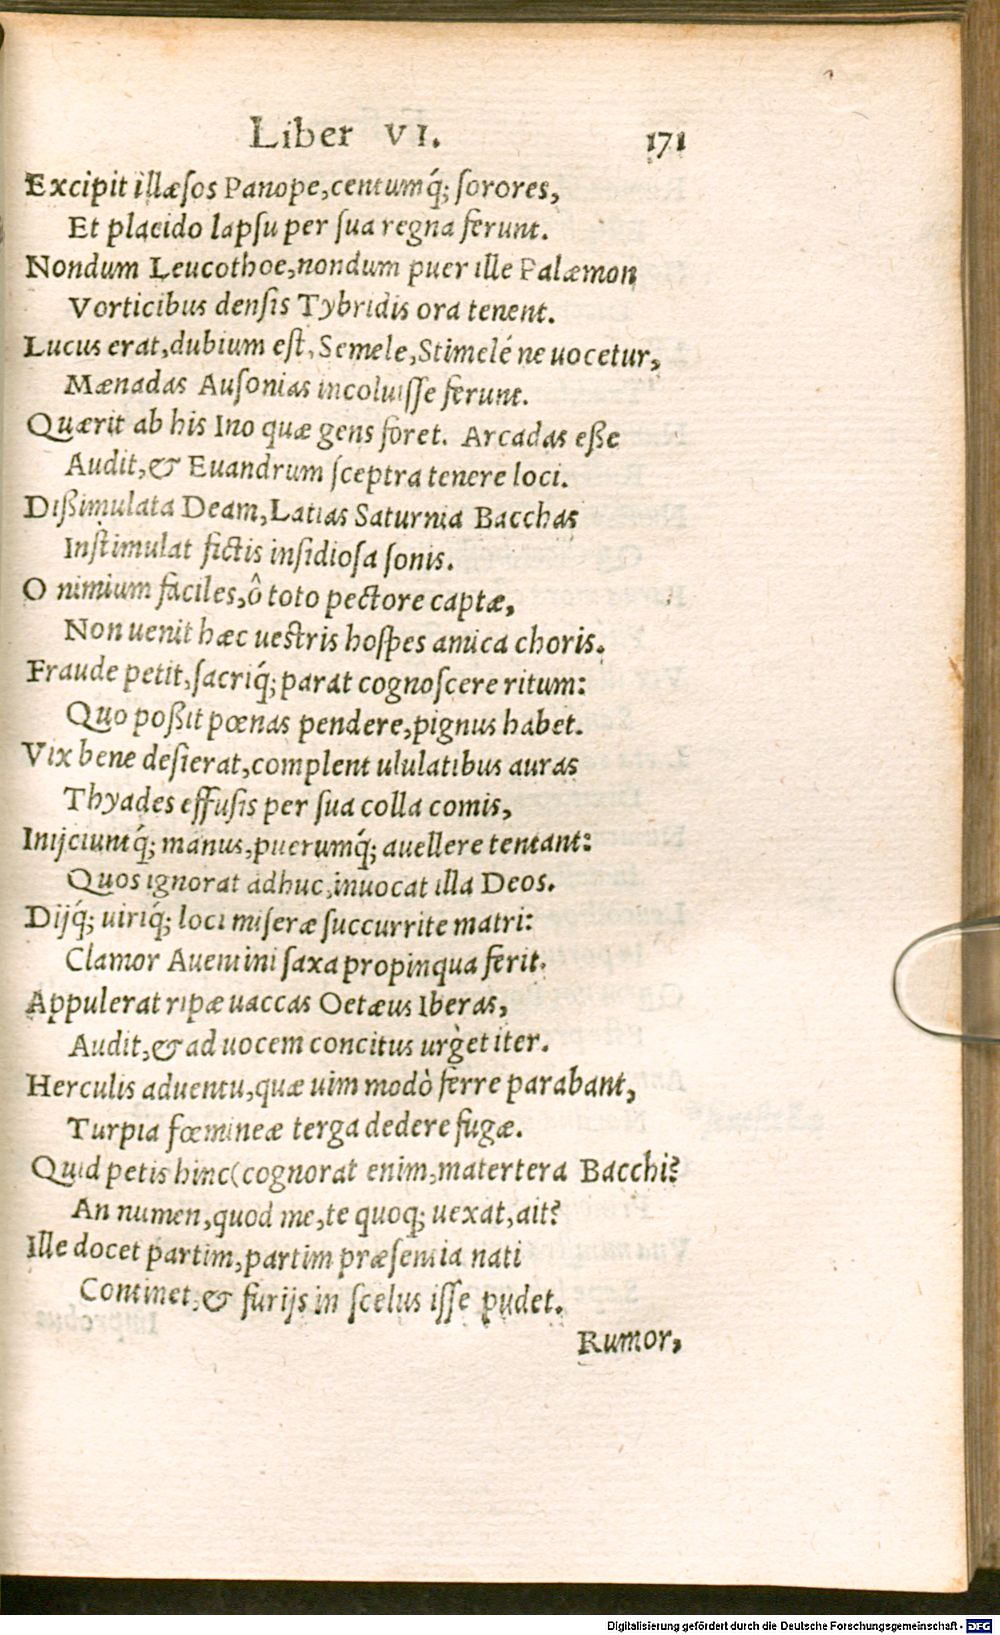 Liber VI. 171
Excipit illæsos Panope, centumq́; sorores,
Et placido lapsu per sua regna ferunt.
Nondum Leucothoe, nondum puer ille Palæmon
Vorticibus densis Tybridis ora tenent.
Lucus erat, dubium est, Semele, Stimelé ne uocetur,
Mænadas Ausonias incoluisse ferunt.
Quærit ab his Ino quæ gens foret. Arcadas eße
Audit, & Euandrum sceptra tenere loci.
Dißimulata Deam, Latias Saturnia Bacchas
Instimulat fictis insidiosa sonis.
O nimium faciles, ô toto pectore captæ,
Non uenit hæc uestris hospes amica choris.
Fraude petit, sacriq́; parat cognoscere ritum:
Quo poßit pœnas pendere, pignus habet.
Vix bene desierat, complent ululatibus auras
Thyades effusis per sua colla comis,
Inijciuntq́; manus, puerumq́; auellere tentant:
Quos ignorat adhuc, inuocat illa Deos.
Dijq́; uiriq́; loci miseræ succurrite matri:
Clamor Auentini saxa propinqua ferit.
Appulerat ripæ uaccas Oetæus Iberas,
Audit, & ad uocem concitus urget iter.
Herculis aduentu, quæ uim modò ferre parabant,
Turpia fœmineæ terga dedere fugæ.
Quid petis hinc (cognorat enim, matertera Bacchi?
An numen, quod me, te quoq; uexat, ait?
Ille docet partim, partim præsentia nati
Continet, & furijs in scelus isse pudet.
Rumor,
Digitalisierung gefördert durch die Deutsche Forschungsgemeinschaft - DFG